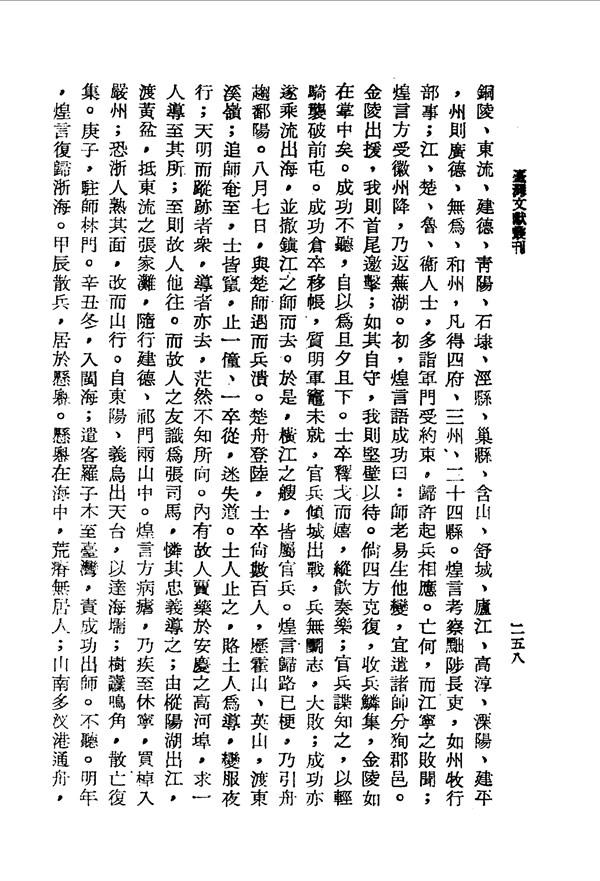 臺灣文獻叢刊
二五八
銅陵、東流、建德、青陽、石埭、涇縣、巢縣、含山、舒城、廬江、高淳、溧陽、建平
，州則廣德、無爲、和州，凡得四府、三州、二十四縣。煌言考察黜陟長吏，如州牧行
部事；江、楚、魯、衞人士，多詣軍門受約束，歸許起兵相應。亡何，而江寧之敗聞；
煌言方受徽州降，乃返蕪湖。初，煌言語成功曰：師老易生他變，宜遣諸帥分狥郡邑。
金陵出援，我則首尾邀擊；如其自守，我則堅壁以待。倘四方克復，收兵鱗集，金陵如
在掌中矣。成功不聽，自以爲旦夕且下。士卒釋戈而嬉，縱飲奏樂；官兵諜知之，以輕
騎襲破前屯。成功倉卒移帳，質明軍竈未就，官兵傾城出戰，兵無鬭志，大敗；成功亦
遂乘流出海，並撤鎮江之師而去。於是，橫江之艘，皆屬官兵。煌言歸路已梗，乃引舟
趨鄱陽。八月七日，與楚師遇而兵潰。楚舟登陸，士卒尙數百人，歷霍山、英山，渡東
溪嶺；追師奄至，士皆竄，止一僮、一卒從，迷失道。土人止之，賂土人爲導，變服夜
行；天明而蹤跡者衆，導者亦去，茫然不知所向。內有故人賈藥於安慶之高河埠，求一
人導至其所；至則故人他往。而故人之友識爲張司馬，憐其忠義導之；由樅陽湖出江，
渡黃盆，抵東流之張家灘，隨行建德、祁門兩山中。煌言方病瘧，乃疾至休寧，買棹入
嚴州；恐浙人熟其面，改而山行。自東陽、義烏出天台，以達海壖；樹纛鳴角，散亡復
集。庚子，駐師林門。辛丑冬，入閩海；遣客羅子木至臺灣，責成功出師。不聽。明年
，煌言復歸浙海。甲辰散兵，居於懸嶴。懸嶴在海中，荒瘠無居人；山南多汊港通舟，